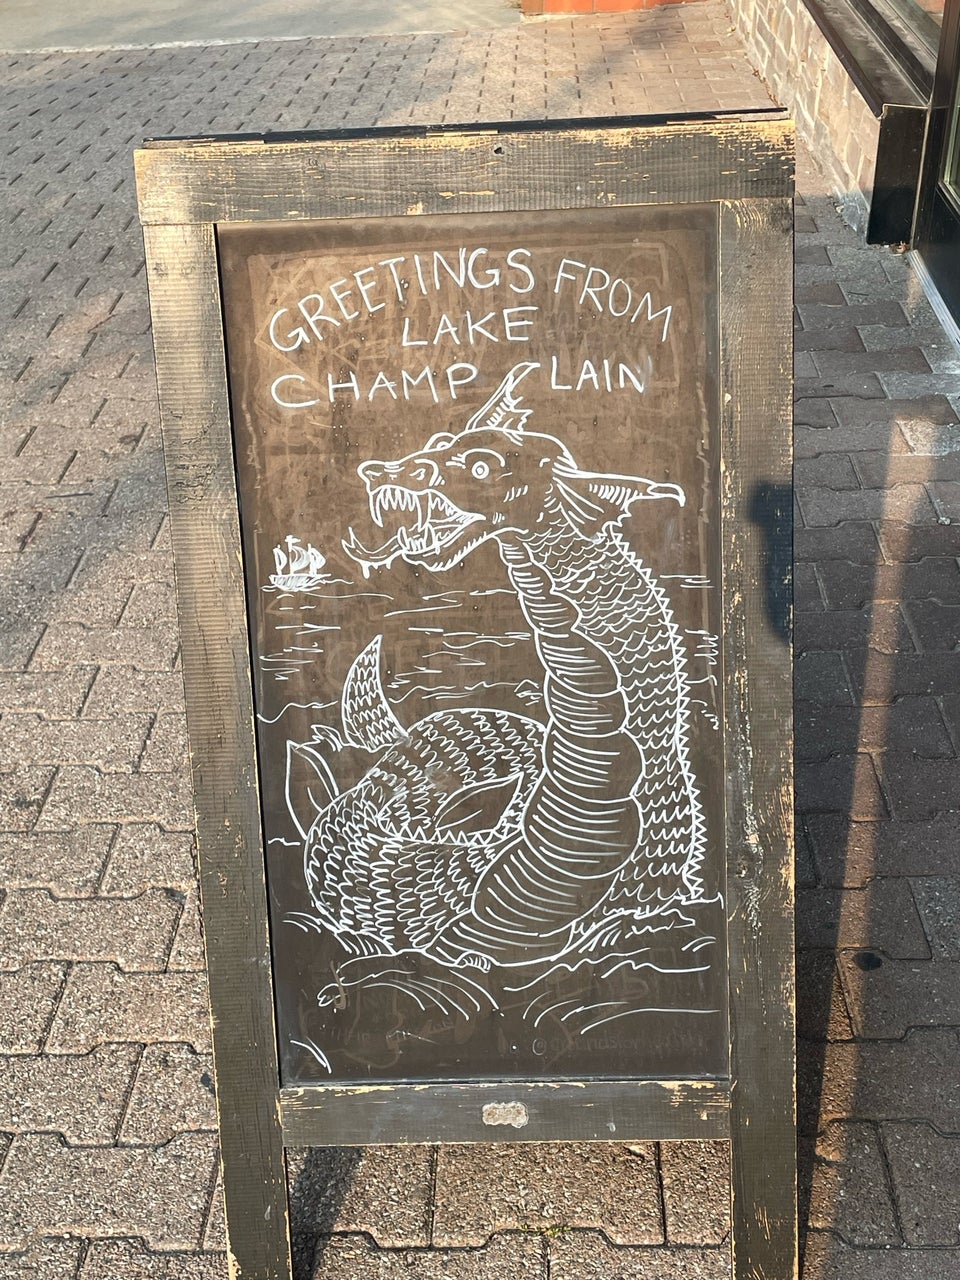 GREETINGS FROM
LAKE
CHAMP LAIN